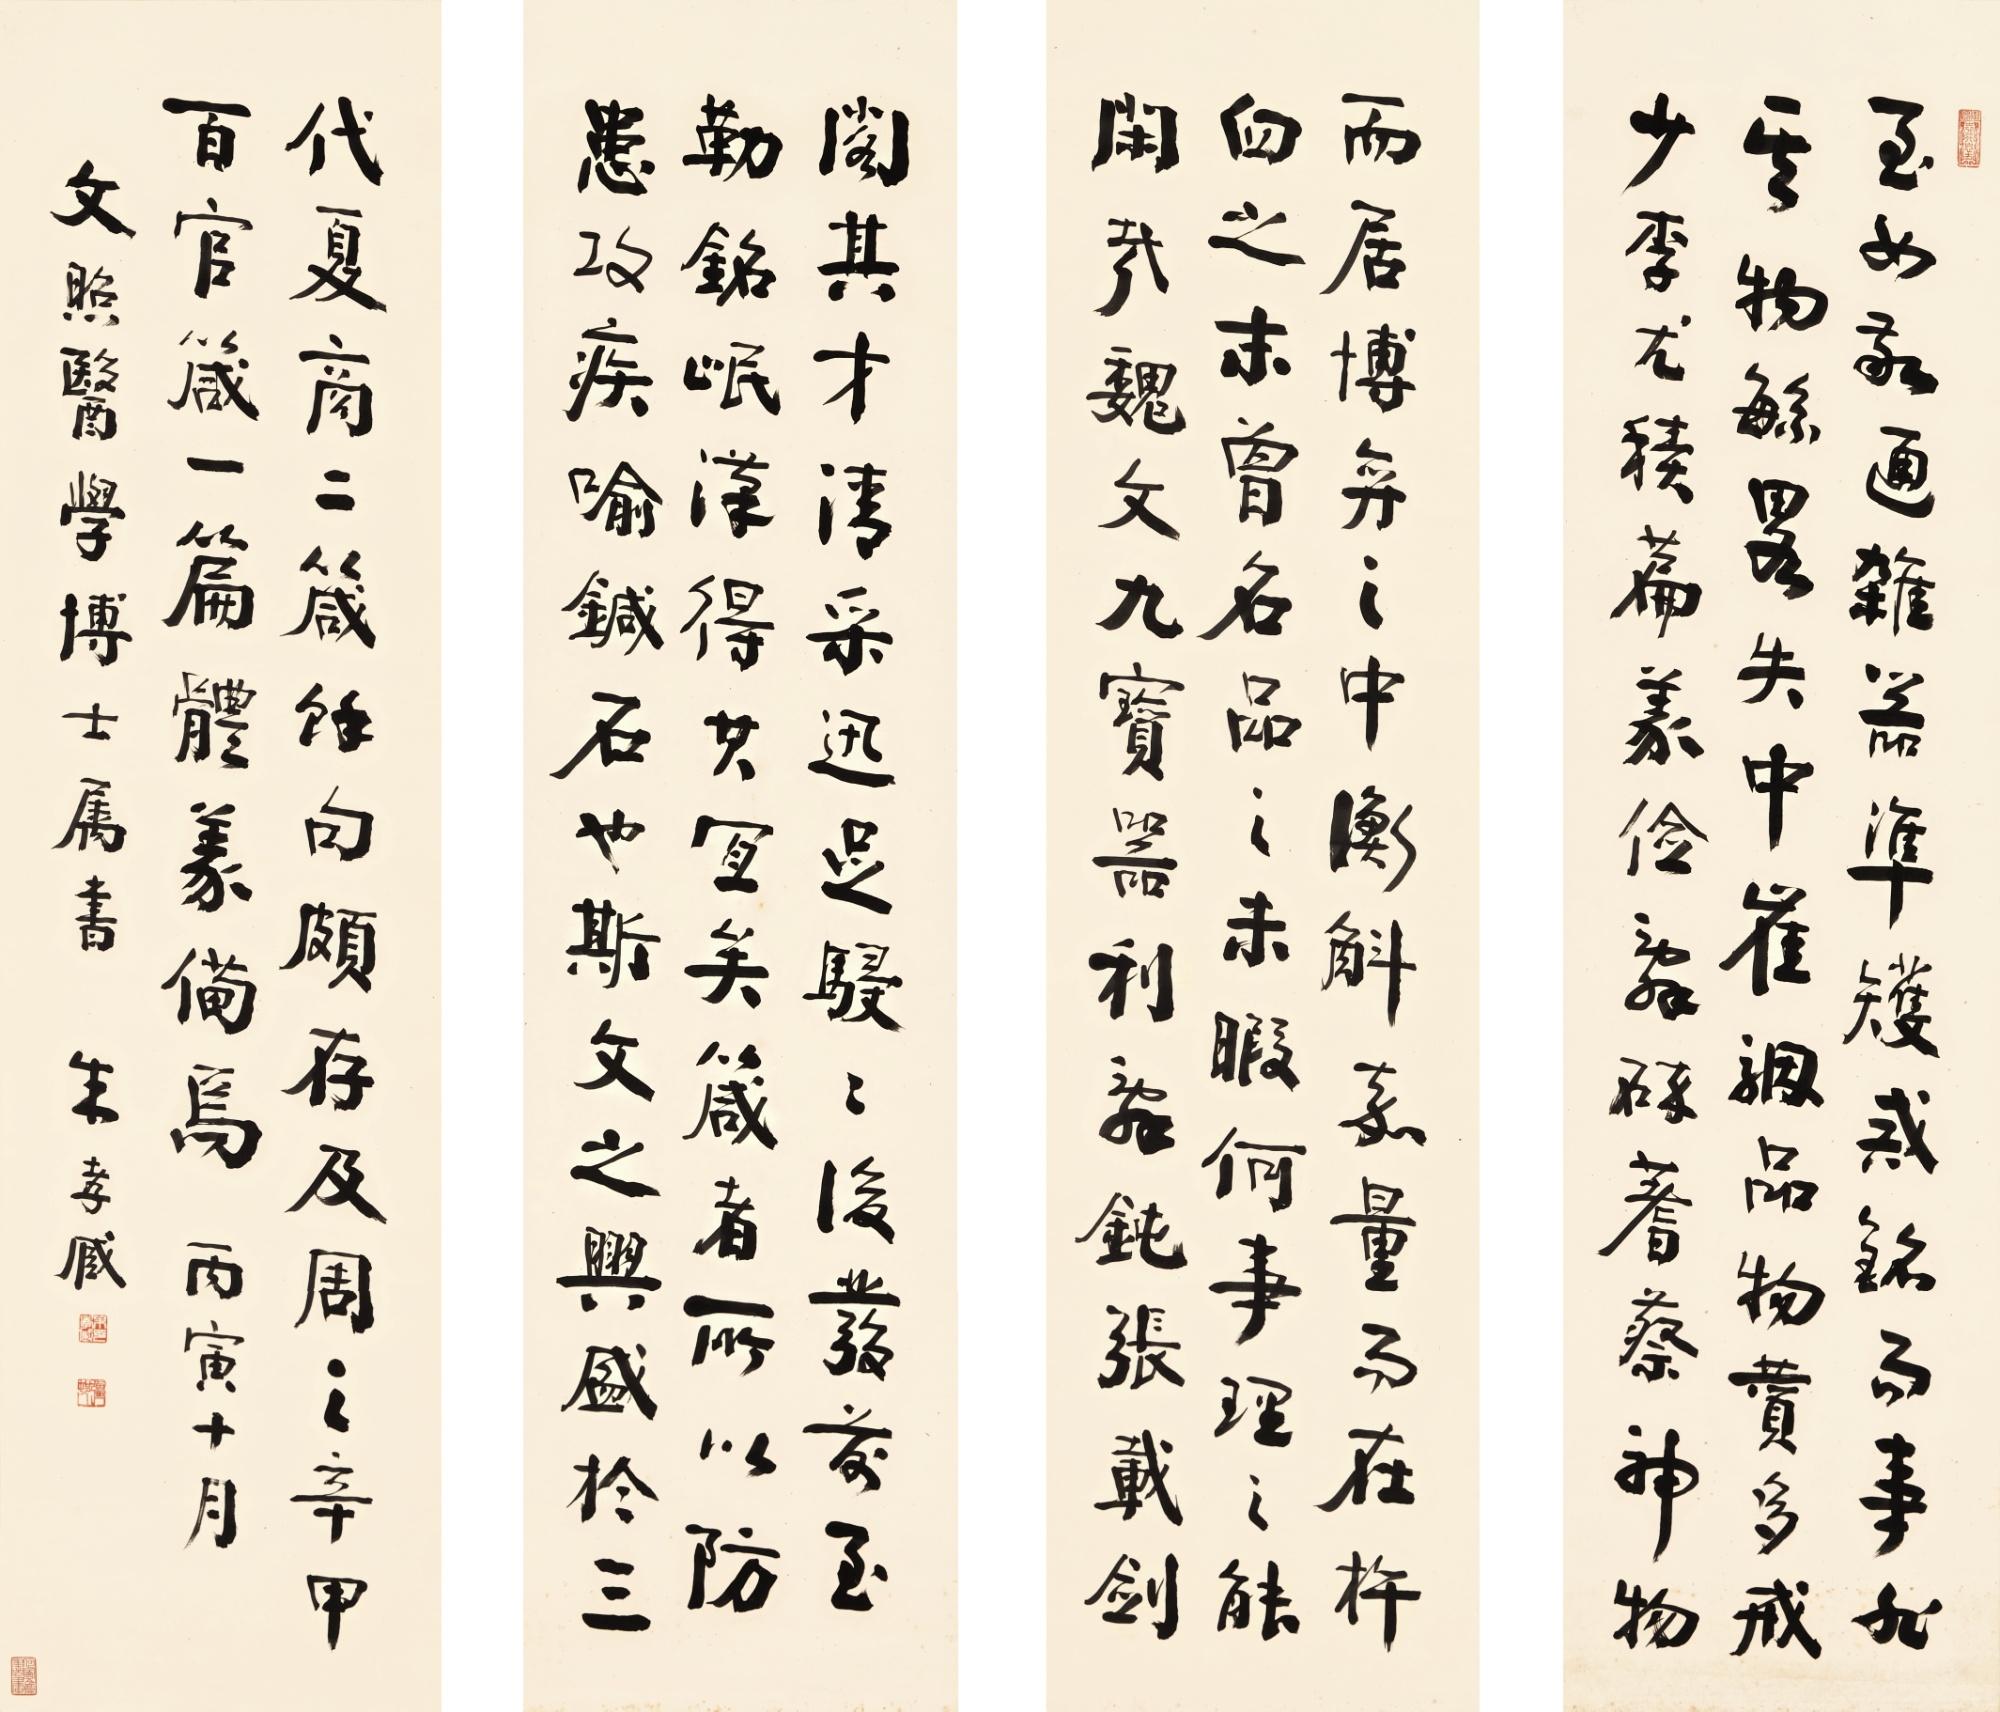 至如敬通雜器準矱武銘而事非
其物緐畧失中崔駰品物贊多戒
少李尤積篇義儉辭碎蓍蔡神物
而居博弈之中衡斛嘉量而在杵
臼之末曾名品之未暇何事理之能
閑哉魏文九寶器利辭鈍張載劍
閣其才清采迅足駸〻後發前至
勒銘岷漢得其宜矣箴者所以防
患攻疾喻鍼石也斯文之興盛於三
代夏商二箴餘句頗存及周之辛甲
百官箴一篇體義備焉 丙寅十月
文照醫學博士属書 朱孝臧